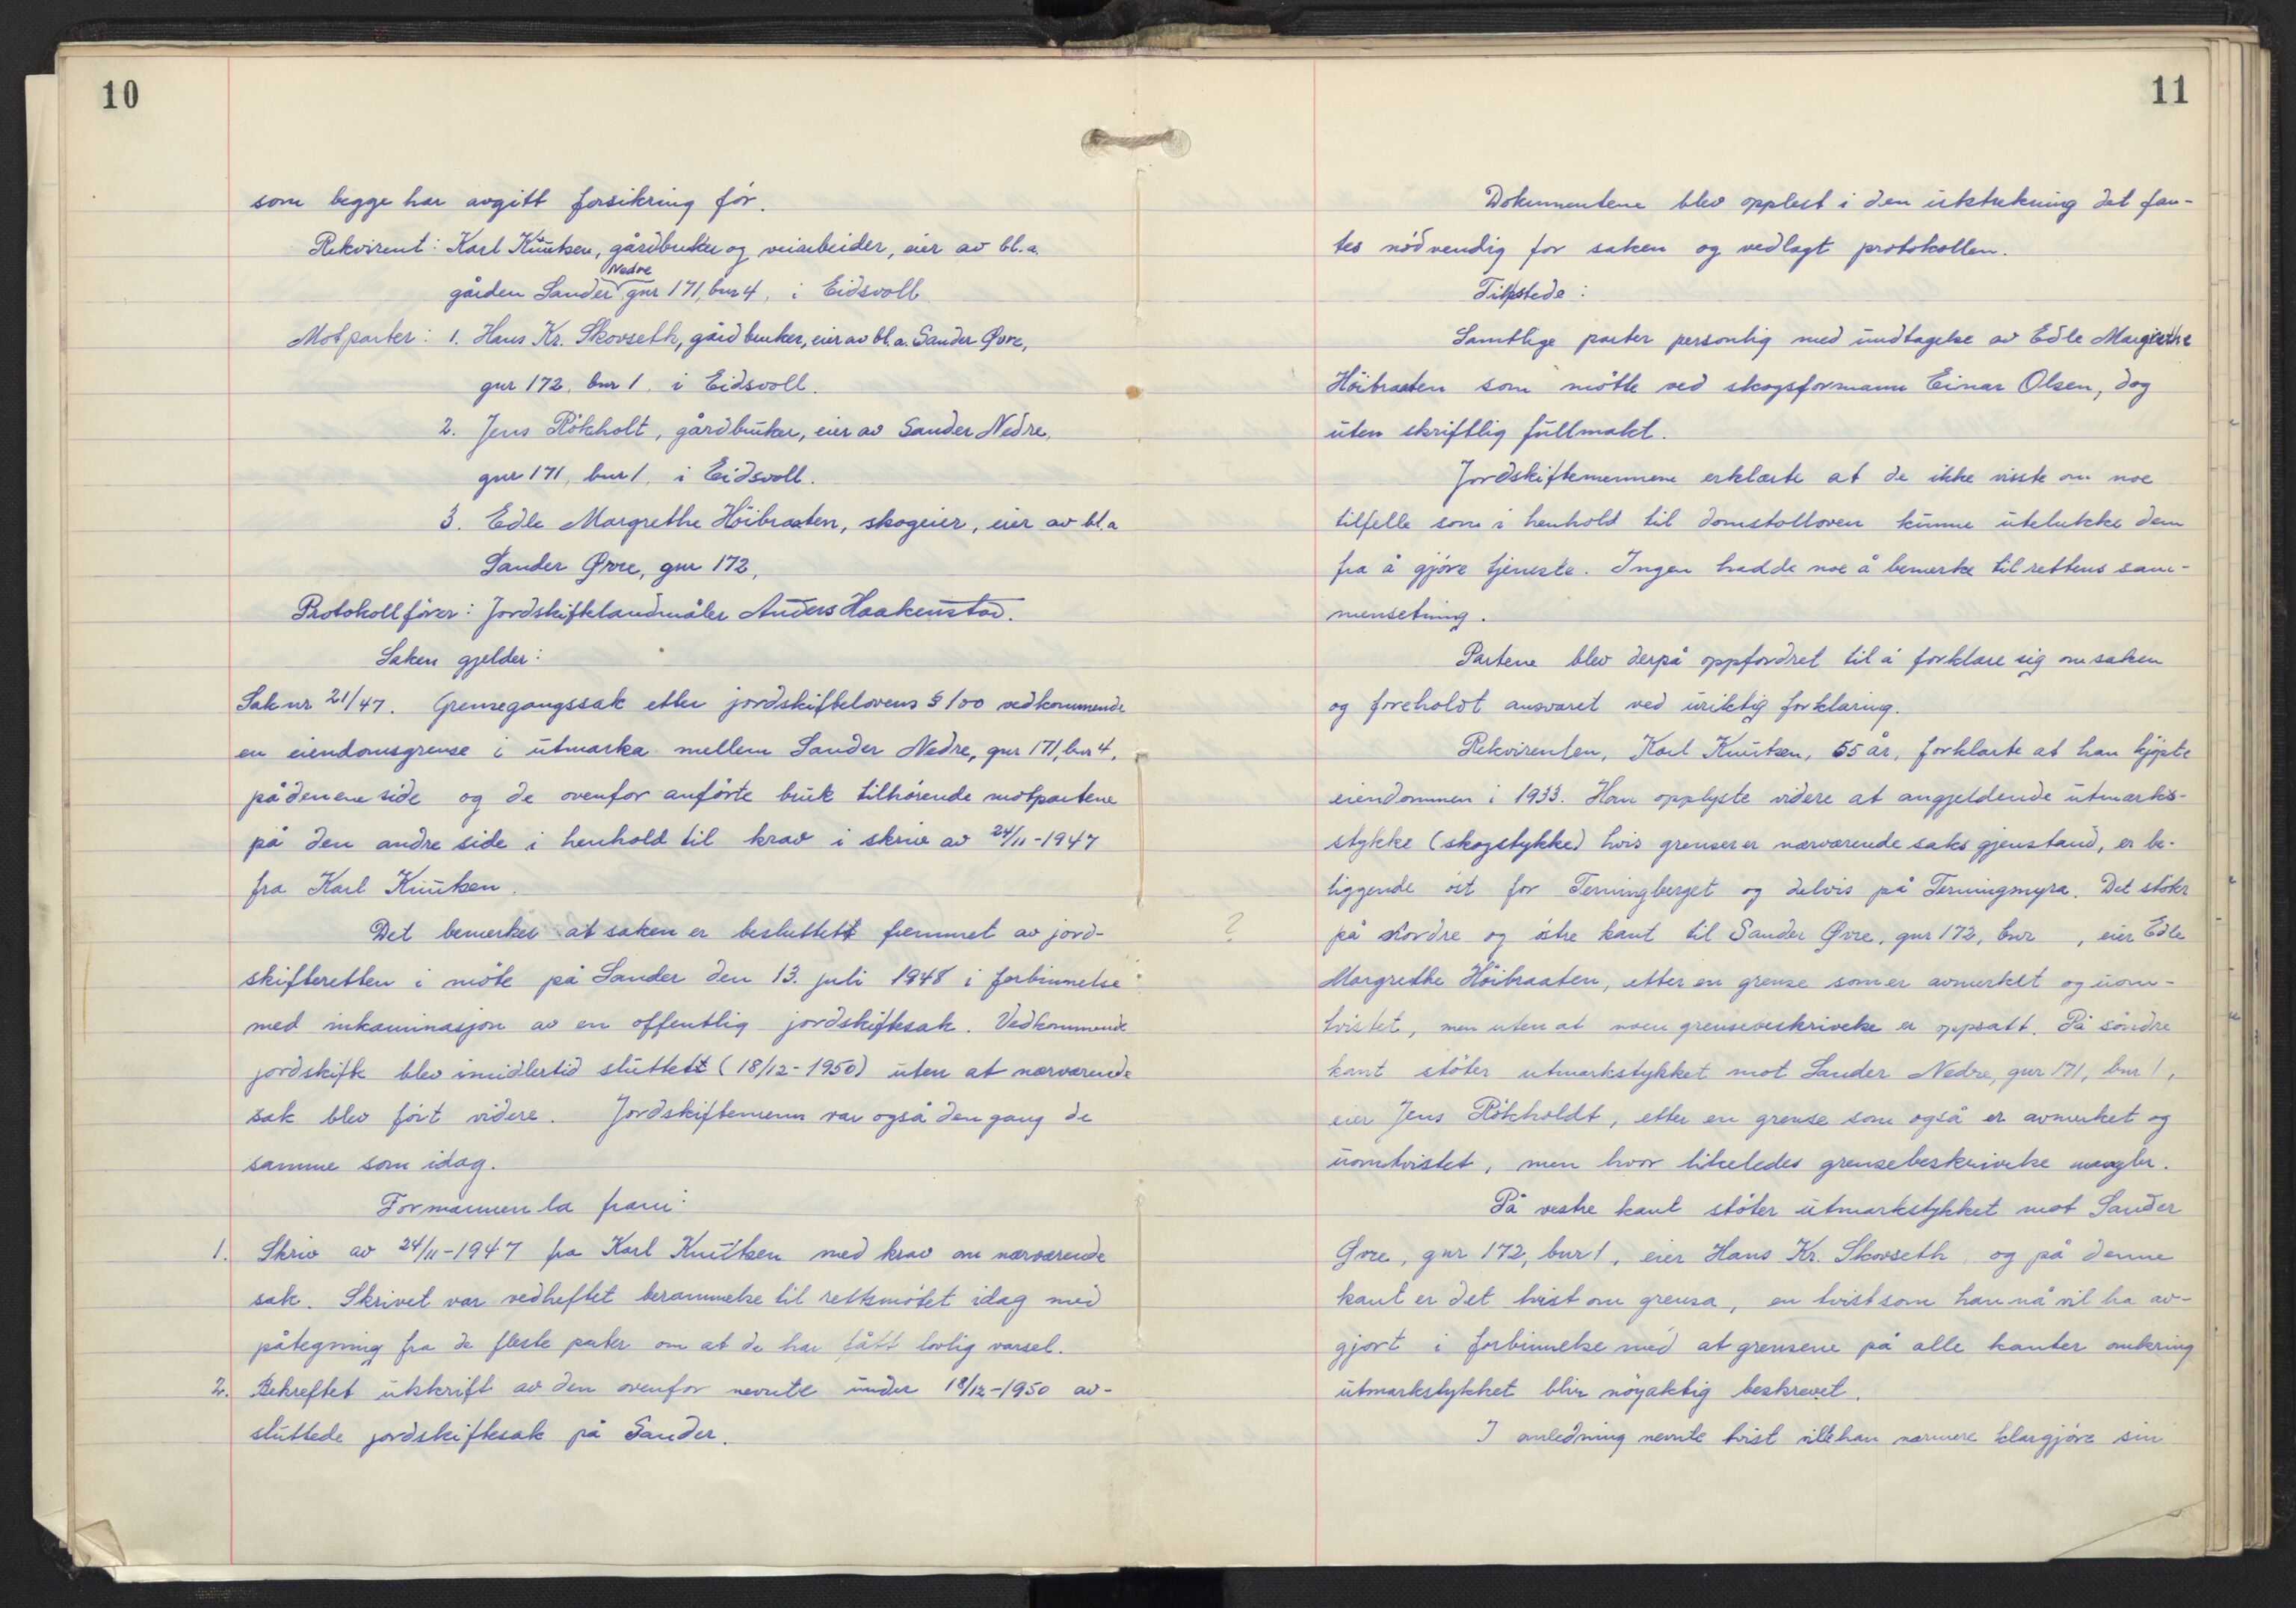 10
som begge har avgitt forsikring før.
Rekvirent: Karl Knutsen, gårdbruker og veiarbeider, eier av bl.a.
Nedre
gården Sander gnr 171, bnr 4, i Eidsvoll
Motparter: 1. Hans Kr. Skovseth, gårdbruker, eier av bl.a. Sander Øvre,
gnr 172, bnr 1, i Eidsvoll.
2. Jens Rökholt, gårdbruker, eier av Sander Nedre,
gnr 171, bnr 1, i Eidsvoll.
3. Edle Margrethe Höibraaten, skogeier, eier av bl.a
Sander Øvre, gnr 172,
Protokollfører: Jordskiftelandmåler Anders Haakenstad.
Saken gjelder:
Sak nr 21/47. Grensegangssak etter jordskiftelovens § 100 vedkommende
en eiendomsgrense i utmarka mellem Sander Nedre, gnr 171, bnr 4,
på den ene side og de ovenfor anførte bruk tilhørende motpartene
på den andre side i henhold til krav i skriv av 24/11-1947
fra Karl Knutsen.
Det bemerkes at saken er besluttett fremmet av jord-
skifteretten i møte på Sander den 13. juli 1948 i forbinnelse
med inkaminasjon av en offentlig jordskiftesak. Vedkommende
jordskifte blev imidlertid sluttett (18/12-1950) uten at nærværende
sak blev ført videre. Jordskiftemenn var også den gang de
samme som idag.
Formannen la fram:
1. Skriv av 24/11-1947 fra Karl Knutsen med krav om nærværende
sak. Skrivet var vedheftet berammelse til rettsmøtet idag med
påtegning fra de fleste parter om at de har fått lovlig varsel.
2. Bekreftet utskrift av den ovenfor nevnte under 18/12-1950 av-
sluttede jordskiftesak på Sander.
11
Dokumentene blev opplest i den utstrekning det fan-
tes nødvendig for saken og vedlagt protokollen.
Tilstede:
Samtlige parter personlig med undtagelse av Edle Margrethe
Höibraaten som møtte ved skogsformann Einar Olsen, dog
uten skriftlig fullmakt.
Jordskiftemennene erklærte at de ikke visste om noe
tilfelle som i henhold til domstolloven kunne utelukke dem
fra å gjøre tjeneste. Ingen hadde noe å bemerke til rettens sam-
mensetning.
Partene blev derpå oppfordret til å forklare sig om saken
og foreholdt ansvaret ved uriktig forklaring.
Rekvirenten, Karl Knutsen, 55 år, forklarte at han kjøpte
eiendommen i 1933. Han opplyste videre at angjeldende utmarks-
stykke (skogstykke) hvis grenser er nærværende saks gjenstand, er be-
liggende øst for Terningberget og delvis på Terningmyra. Det støter
? på nordre og østre kant til Sander Øvre, gnr 172, bnr , eier Edle
Margrethe Höibraaten, etter en grense som er avmerket og uom-
tvistet, men uten at noen grensebeskrivelse er oppsatt. På søndre
kant støter utmarkstykket mot Sander Nedre, gnr 171, bnr 1,
eier Jens Rökholdt, etter en grense som også er avmerket og
uomtvistet, men hvor likeledes grensebeskrivelse mangler.
På vestre kant støter utmarkstykket mot Sander
Øvre, gnr 172, bnr 1, eier Hans Kr. Skovseth, og på denne
kant er det tvist om grensa, en tvist som han nå vil ha av-
gjort i forbinnelse med at grensene på alle kanter omkring
utmarkstykket blir nøyaktig beskrevet.
I anledning nevnte tvist ville han nærmere klargjøre sin